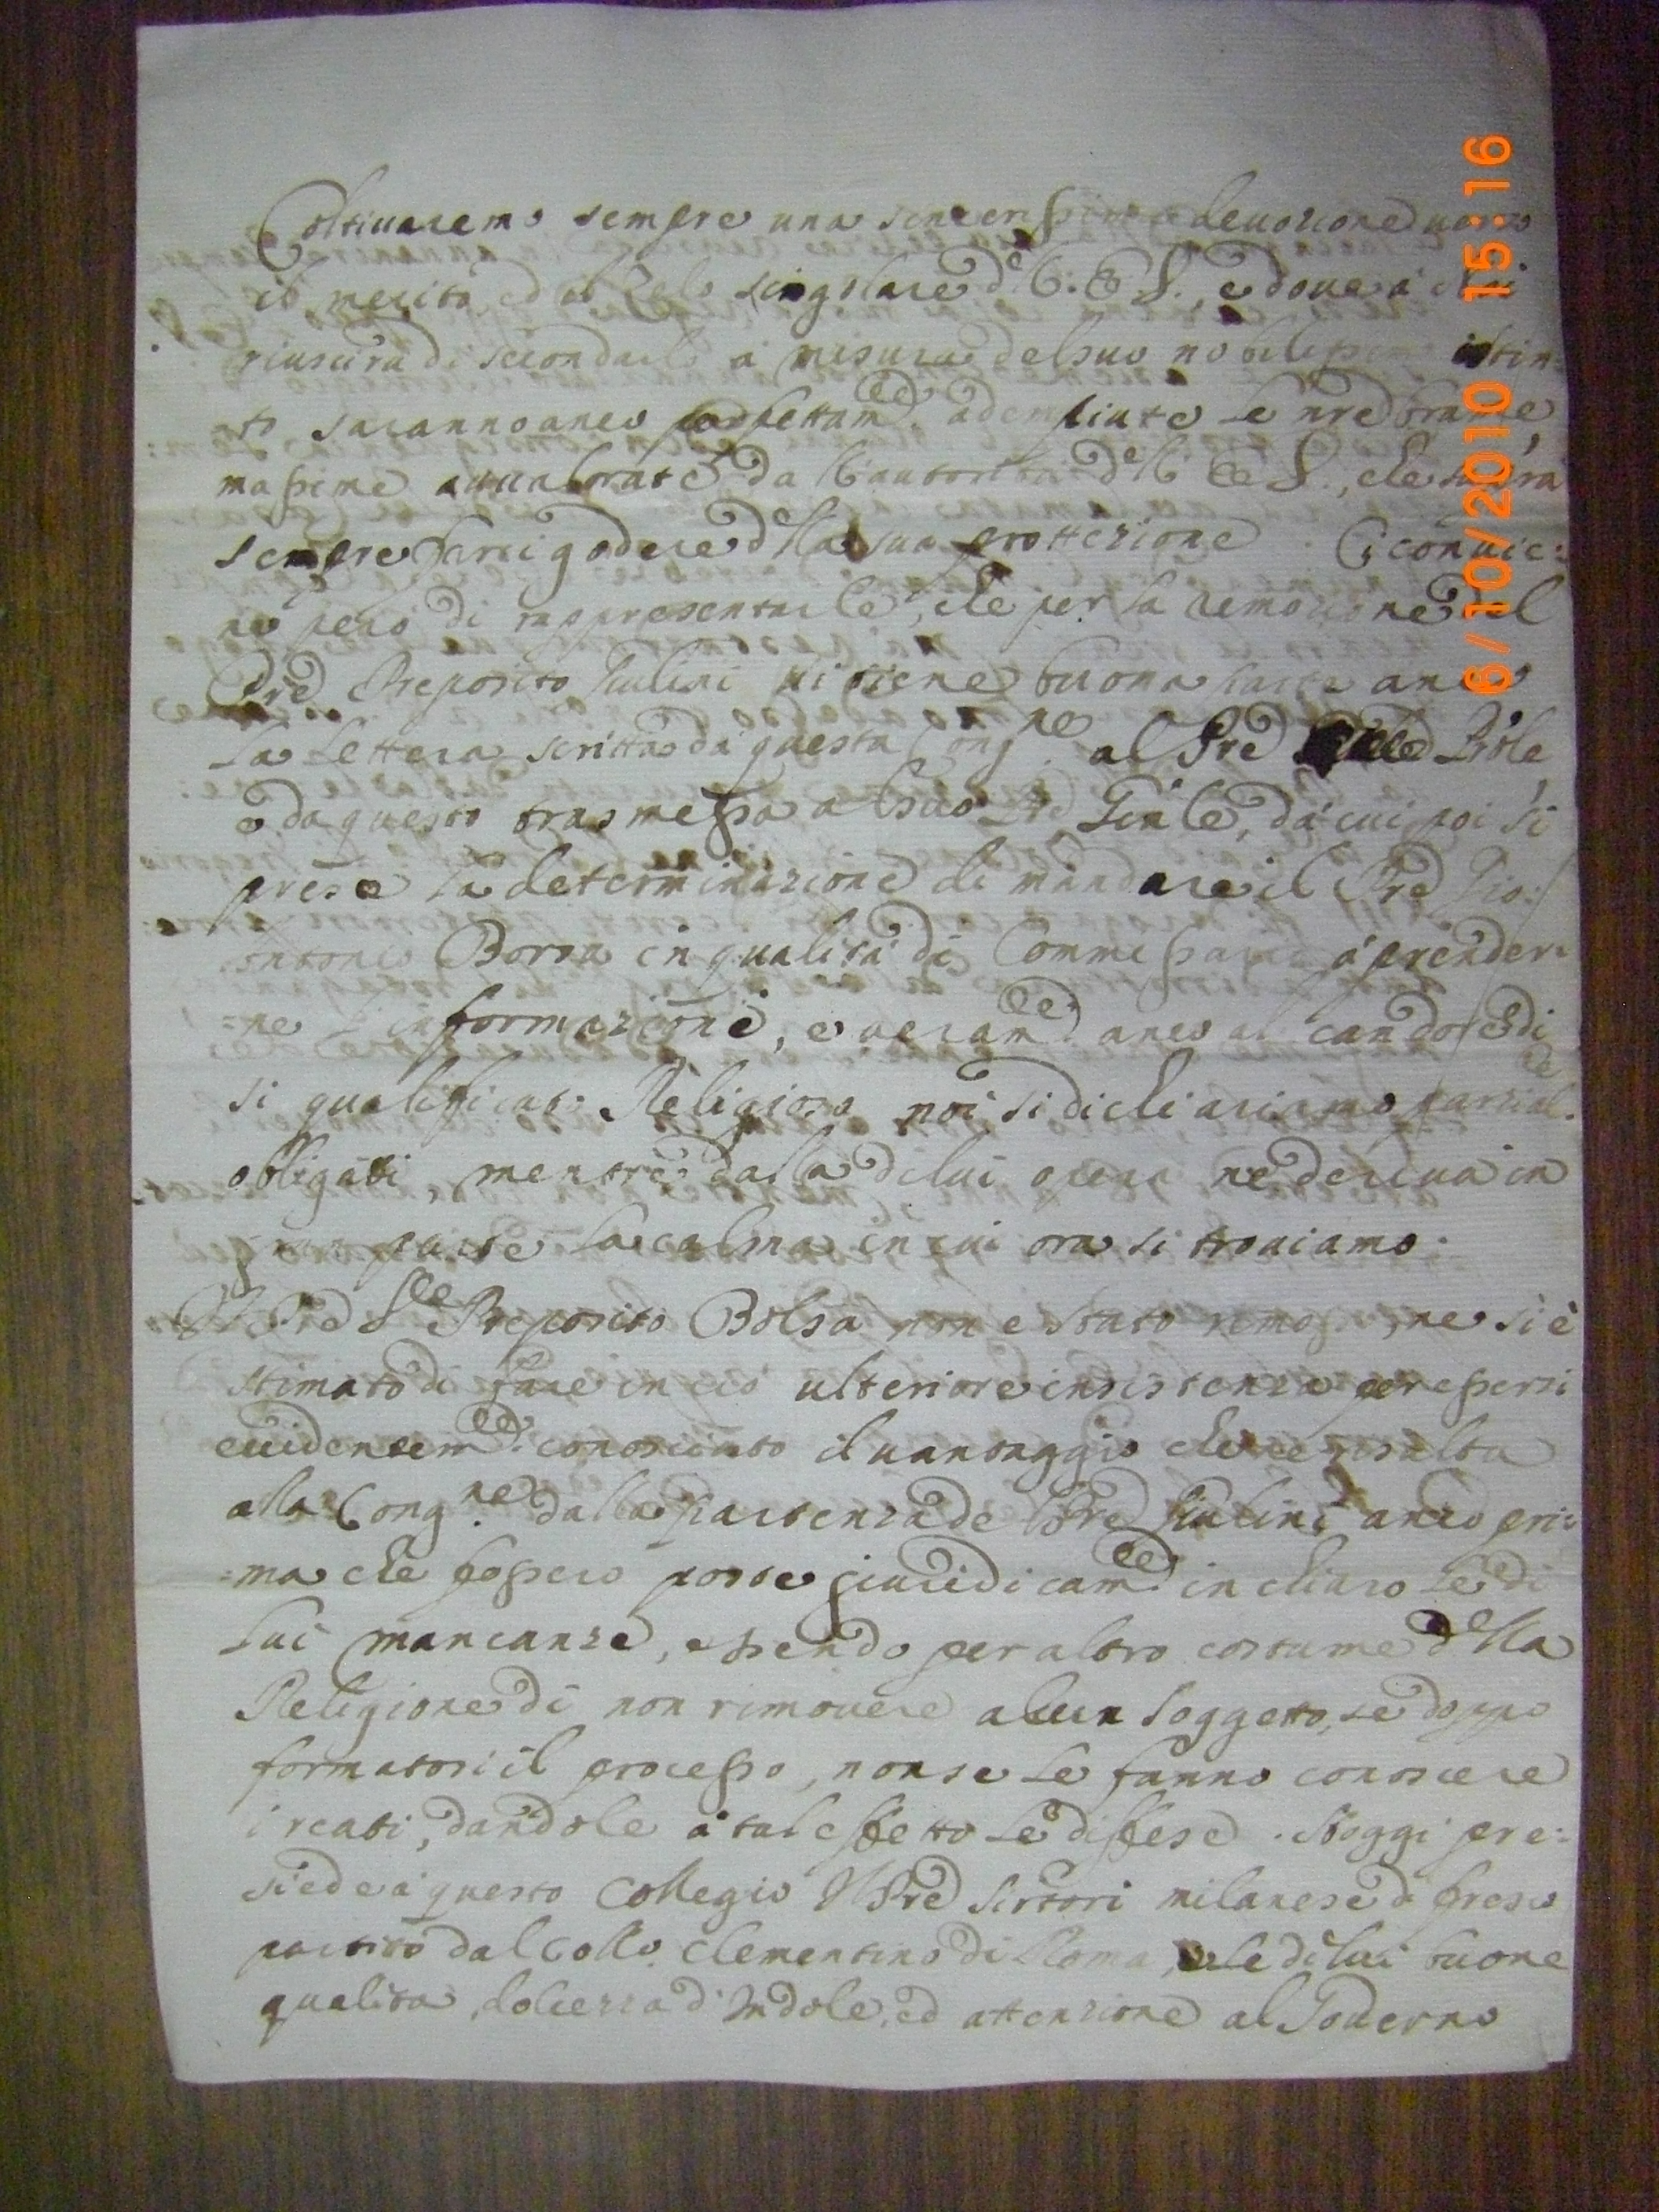 Coltivaremo sempre una sincerissima devozione verso
il merito, ed il Zelo singolare d V: E S., e dove a
riuscirà di secondarlo à misura del suo nobilissimo istin:
to saranno anco perfettam.te adempiute le nre brame,
massime avvalorate dall'autorità dell' E S., che saprà
sempre farci godere della sua prottezione. Ci convie:
ne però di rappresentarle, che per la remozione del
Pre Preposito Giulini vi tiene buona parte anco
la lettera scritta da questa Cong.ne al Pre Prôle,
e da questo trasmessa al suo Pre Gen̄le, da cui poi si
prese la determinazione di mandare il Pre Gio:
Antonio Borsa in qualità di Commissario à prender:
=ne l'informazione, e veram.te anco al candore di
si qualificato Religioso noi si dichiariamo parzial.te
obligati, mentre dalla di lui opera ne deriva in
gran parte la calma in cui ora si troviamo.
Il Pre Preposito Bolsa non e stato remosso, ne si è
stimato di fare in ciò ulteriore insistenza per essersi
evidentem.te conosciuto il vantaggio che ne risulta
alla Cong.ne dalla partenza del Pre Giulini anco pri:
=ma che fossero poste giuridicam.te in chiaro le di
lui mancanze, essendo per altro costume della
Religione di non rimovere alcun soggetto, se doppo
formatosi il processo, non se le fanno conoscere
i reati, dandole à tal effetto le diffese. Hoggi pre:
siede à questo Collegio Il Pre Sirtori milanese di fresco
partito dal Collo. Clementino di Roma, e le di lui buone
qualità, dolcezza d'Indole, ed attenzione al Governo
6/10/2010 15:16